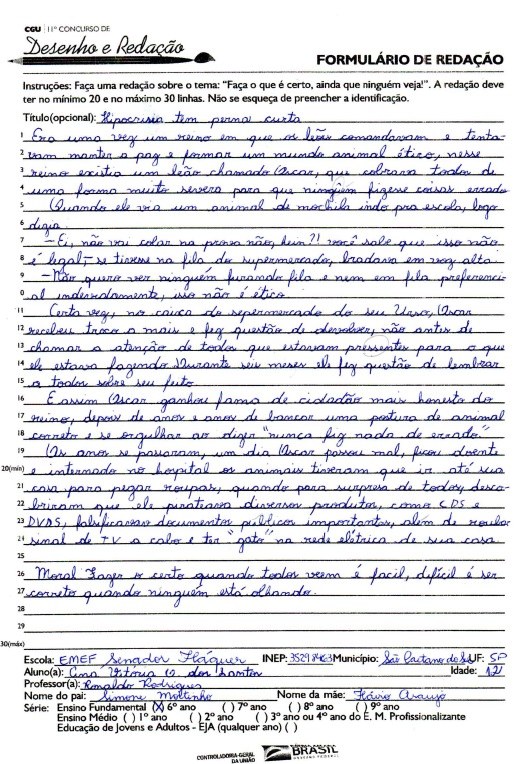 CGU | 11º CONCURSO DE
Desenho e Redação
FORMULÁRIO DE REDAÇÃO
Instruções: Faça uma redação sobre o tema: "Faça o que é certo, ainda que ninguém veja!". A redação deve
ter no mínimo 20 e no máximo 30 linhas. Não se esqueça de preencher a identificação.
Título(opcional): Hipocrisia tem perna curta
1 Era uma vez um reino em que os leões comandavam e tenta-
2 vam manter a paz e formar um mundo animal ético, nesse
3 reino existia um leão chamado Oscar, que cobrava todos de
4 uma forma muito severa para que ninguém fizesse coisas errado
5 Quando ele via um animal de mochila indo pra escola, logo
6 dizia:
7 – Ei, não vai colar na prova não, hein?! você sabe que isso não
8 é legal; – se tivesse na fila do supermercado, bradava em voz alta.
9 – Não quero ver ninguém furando fila e nem em fila preferenci
0 al indevidamente, isso não é ético.
11 Certa vez, no caixa do supermercado do seu Urso, Oscar
12 recebeu troco a mais e fez questão de devolver, não antes de
13 chamar a atenção de todos que estavam pressentes para o que
14 ele estava fazendo. Durante seis meses ele fez questão de lembrar
15 a todos sobre seu feito.
16 E assim Oscar ganhou fama de cidadão mais honesto do
17 reino, depois de anos e anos de bancar uma postura de animal
18 correto e se orgulhar ao dizer "nunca fiz nada de errado."
19 Os anos se passaram, um dia Oscar passou mal, ficou doente
20(mín) e internado no hospital os animais tiveram que ir até sua
21 casa para pegar roupas, quando para surpresa de todos, desco-
22 briram que ele pirateava diversos produtos, como CDS e
23 DVDS, falsificava documentos públicos importantes, além de roubar
24 sinal de TV a cabo e ter "gato" na rede elétrica de sua casa.
25
26 Moral: Fazer o certo quando todos veem é facil, difícil é ser
27 correto quando ninguém está olhando.
28
29
30(máx)
Escola: EMEF Senador Fláquer INEP: Município: São Caetano do Sul UF: SP
Aluno(a): Ana Vitória O. dos Santos Idade: 12
Professor(a): Ronaldo Rodrigues
Nome do pai: Simone Moitinho Nome da mãe: Flávio Araujo
Série: Ensino Fundamental (X) 6º ano ( ) 7º ano ( ) 8º ano ( ) 9º ano
Ensino Médio ( ) 1º ano ( ) 2º ano ( ) 3º ano ou 4º ano do E. M. Profissionalizante
Educação de Jovens e Adultos - EJA (qualquer ano) ( )
CONTROLADORIA-GERAL
DA UNIÃO
BRASIL
GOVERNO FEDERAL